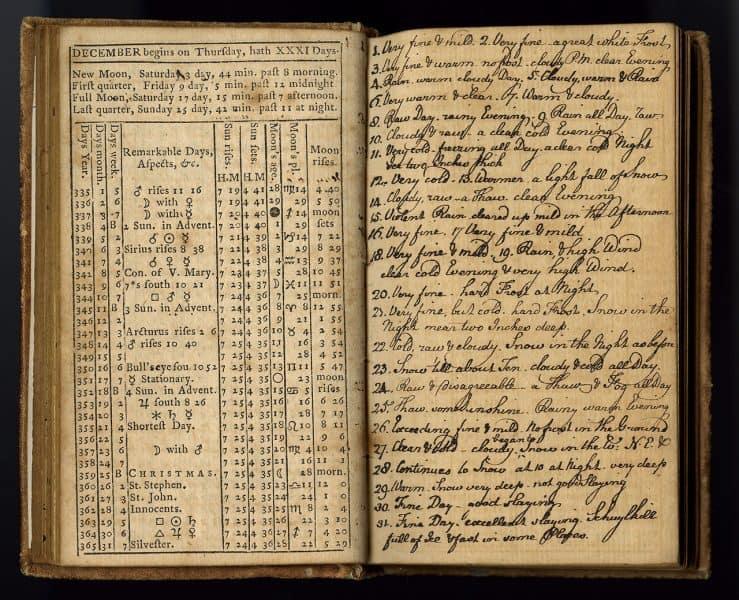 DECEMBER begins on Thursday, hath XXXI Days.
New Moon, Saturday 3 day, 44 min. past 8 morning.
First quarter, Friday 9 day, 5 min. past 12 midnight
Full Moon, Saturday 17 day, 15 min. past 7 afternoon.
Last quarter, Sunday 25 day, 42 min. past 11 at night.
Days Year. Days month. Days week. Remarkable Days, Aspects, &c. Sun rises. Sun sets. Moon's age. Moon's pl. Moon rises.
H. M H. M
335 1 5 ♂ rises 11 16 7 19 4 41 28 ♏ 14 4 40
336 2 6 ☽ with ♀ 7 19 4 41 29 29 5 50
337 3 7 ☽ with ☿ 7 20 4 40 ● ♐ 14 moon
338 4 B 2 Sun. in Advent. 7 20 4 40 1 29 sets
339 5 2 ♂ ☉ ☿ 7 21 4 39 2 ♑ 14 7 22
340 6 3 Sirius rises 8 38 7 22 4 38 3 29 8 29
341 7 4 ♂ ♀ ☿ 7 22 4 38 4 ♒ 13 9 37
342 8 5 Con. of V. Mary. 7 23 4 37 5 28 10 45
343 9 6 7*s south 10 21 7 23 4 37 ☽ ♓ 11 11 51
344 10 7 □ ♂ ☿ 7 24 4 36 7 25 morn.
345 11 B 3 Sun. in Advent. 7 24 4 36 8 ♈ 8 12 55
346 12 2 7 24 4 36 9 21 1 55
347 13 3 Arcturus rises 2 6 7 24 4 36 10 ♉ 4 2 54
348 14 4 ♂ rises 10 40 7 25 4 35 11 16 3 54
349 15 5 7 25 4 35 12 28 4 52
350 16 6 Bull's eye sou. 10 52 7 25 4 35 13 ♊ 11 5 47
351 17 7 ☿ Stationary. 7 25 4 35 ○ 23 moon
352 18 B 4 Sun. in Advent. 7 25 4 35 15 ♋ 5 rises
353 19 2 ♃ south 8 26 7 25 4 35 16 16 6 26
354 20 3 ⚹ ♄ ☿ 7 25 4 35 17 28 7 17
355 21 4 Shortest Day. 7 25 4 35 18 ♌ 10 8 11
356 22 5 7 25 4 35 19 22 9 6
357 23 6 ☽ with ♂ 7 25 4 35 20 ♍ 4 10 4
358 24 7 7 25 4 35 21 16 11 3
359 25 B CHRISTMAS. 7 25 4 35 ☾ 28 morn.
360 26 2 St. Stephen. 7 25 4 35 23 ♎ 11 12 0
361 27 3 St. John. 7 24 4 36 24 24 1 0
362 28 4 Innocents. 7 24 4 36 25 ♏ 8 2 4
363 29 5 □ ☉ ♄ 7 24 4 36 26 22 3 10
364 30 6 △ ♃ ♀ 7 24 4 36 27 ♐ 7 4 20
365 31 7 Silvester. 7 24 4 36 28 22 5 29
1. Very fine & mild. 2. Very fine - a great white Frost
3. Very fine & warm no frost. cloudy P.M. clear Evening
4. Rain. warm cloudy Day. 5. Cloudy, warm & Rain
6. Very warm & clear. 7. Warm & cloudy.
8. Raw Day. rainy Evening. 9. Rain all Day. raw.
10. Cloudy & raw - a clear cold Evening
11. Very cold - freezing all Day. a clear cold Night
Ice two Inches thick
12. Very cold - 13. Warmer. a light fall of Snow
14. Cloudy, raw - a Thaw. clear Evening
15. Violent Rain. cleared up mild in the Afternoon
16. Very fine. 17 Very fine & mild
18. Very fine & mild. 19. Rain, & high Wind
clear cold Evening & very high Wind.
20. Very fine. hard Frost at Night
21. Very fine, but cold. hard Frost. Snow in the
Night near two Inches deep.
22. Cold, raw & cloudy. Snow in the Night as before
23. Snow till about Ten. cloudy & cold all Day
24. Raw & disagreeable - a Thaw & Fog all day
25. Thaw. some sunshine. Rainy warm Evening
26. Exceeding fine & mild. No frost in the Ground
27. Clear & cold - cloudy. began to Snow in the Eve. N.E.
28. Continues to Snow at 10 at Night. very deep
29. Warm. Snow very deep. not good Slaying
30. Fine Day - good slaying
31. Fine Day - excellent slaying. Schuylkill
full of Ice & fast in some Places.